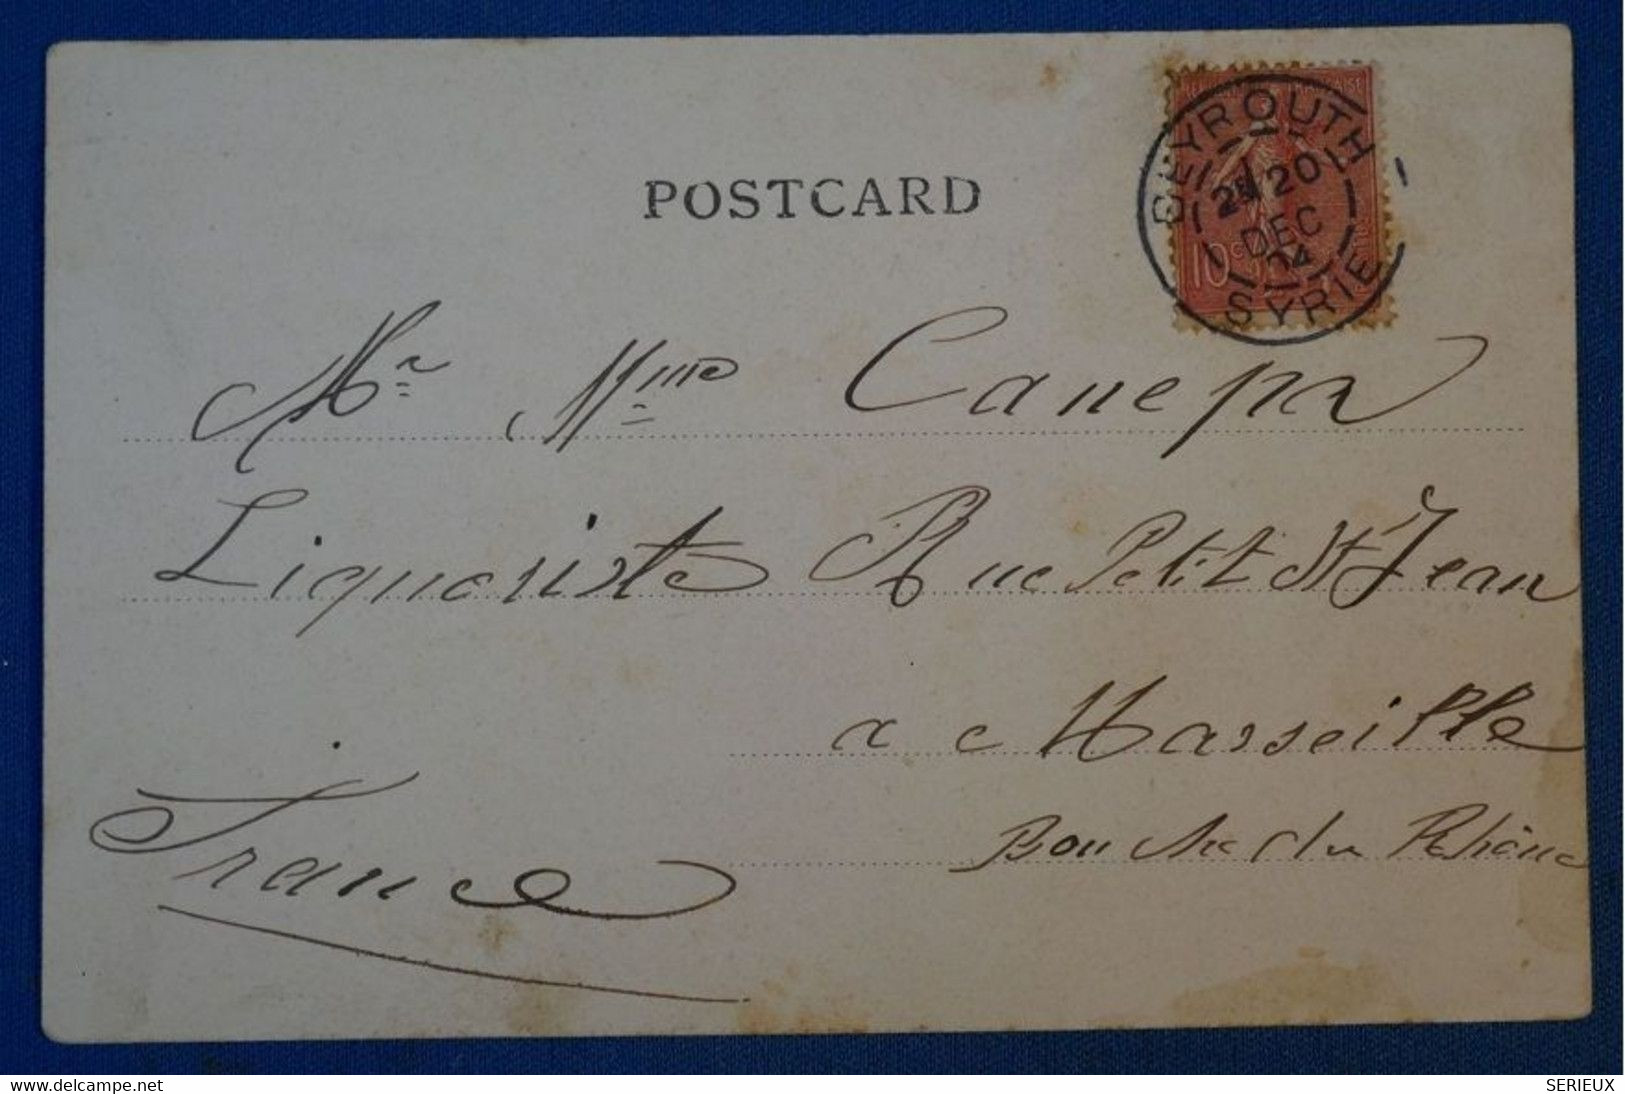 POSTCARD
BEYROUTH
20
DEC
04
SYRIE
10 c
Mr Mme Canepa
Liquoriste Rue Petit St Jean
a Marseille
Bouche du Rhône
France
SERIEUX
delcampe.net